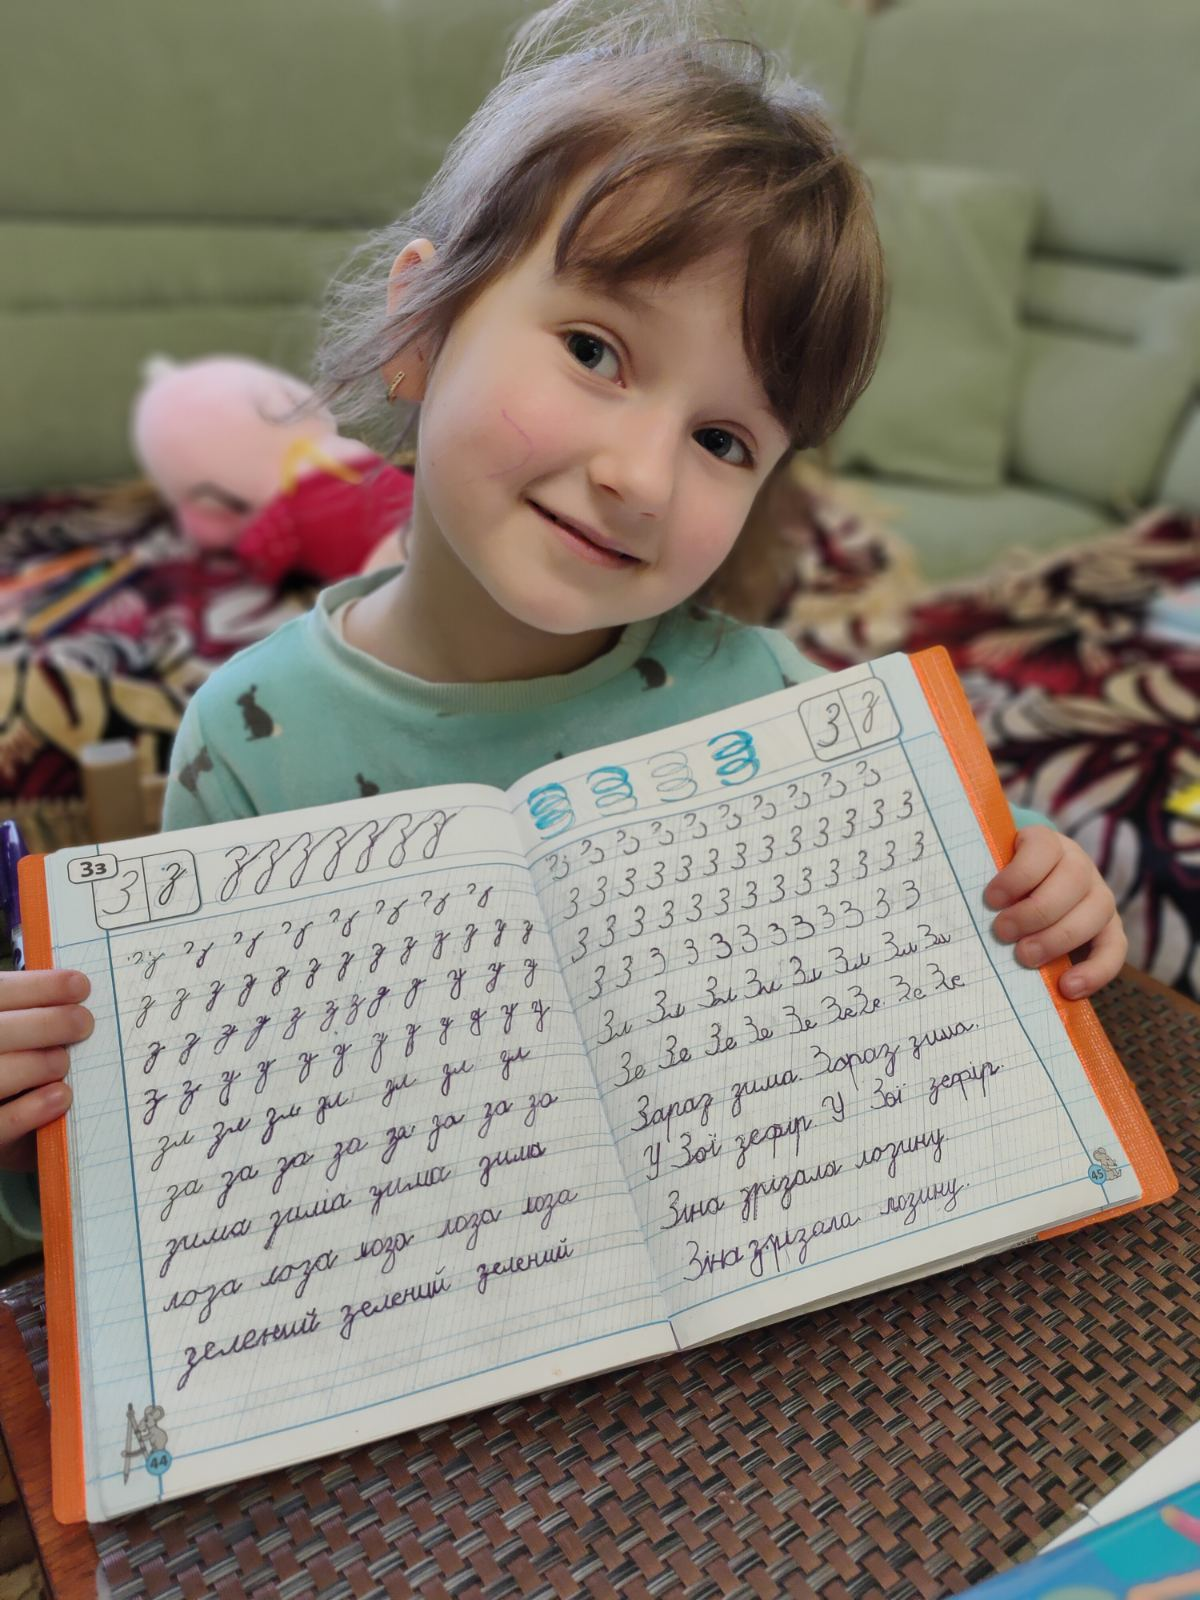 Зз
З з з з з з з з з
з з з з з з з
з з з з з з з з з з з з
з з з з з з з з з з з
з з з з з з з з з з з
зл зл зл зл зл зл зл
за за за за за за за за
зима зима зима зима
лоза лоза лоза лоза лоза
зелений зелений зелений
44
З з
З З З З З З З З З З
З З З З З З З З З З З З З
З З З З З З З З З З З З З
З З З З З З З З З З З
Зл Зл Зл Зл Зл Зл Зл Зл
Зе Зе Зе Зе Зе Зе Зе Зе Зе
Зараз зима. Зараз зима.
У Зої зефір. У Зої зефір.
Зіна зрізала лозину.
Зіна зрізала лозину.
45